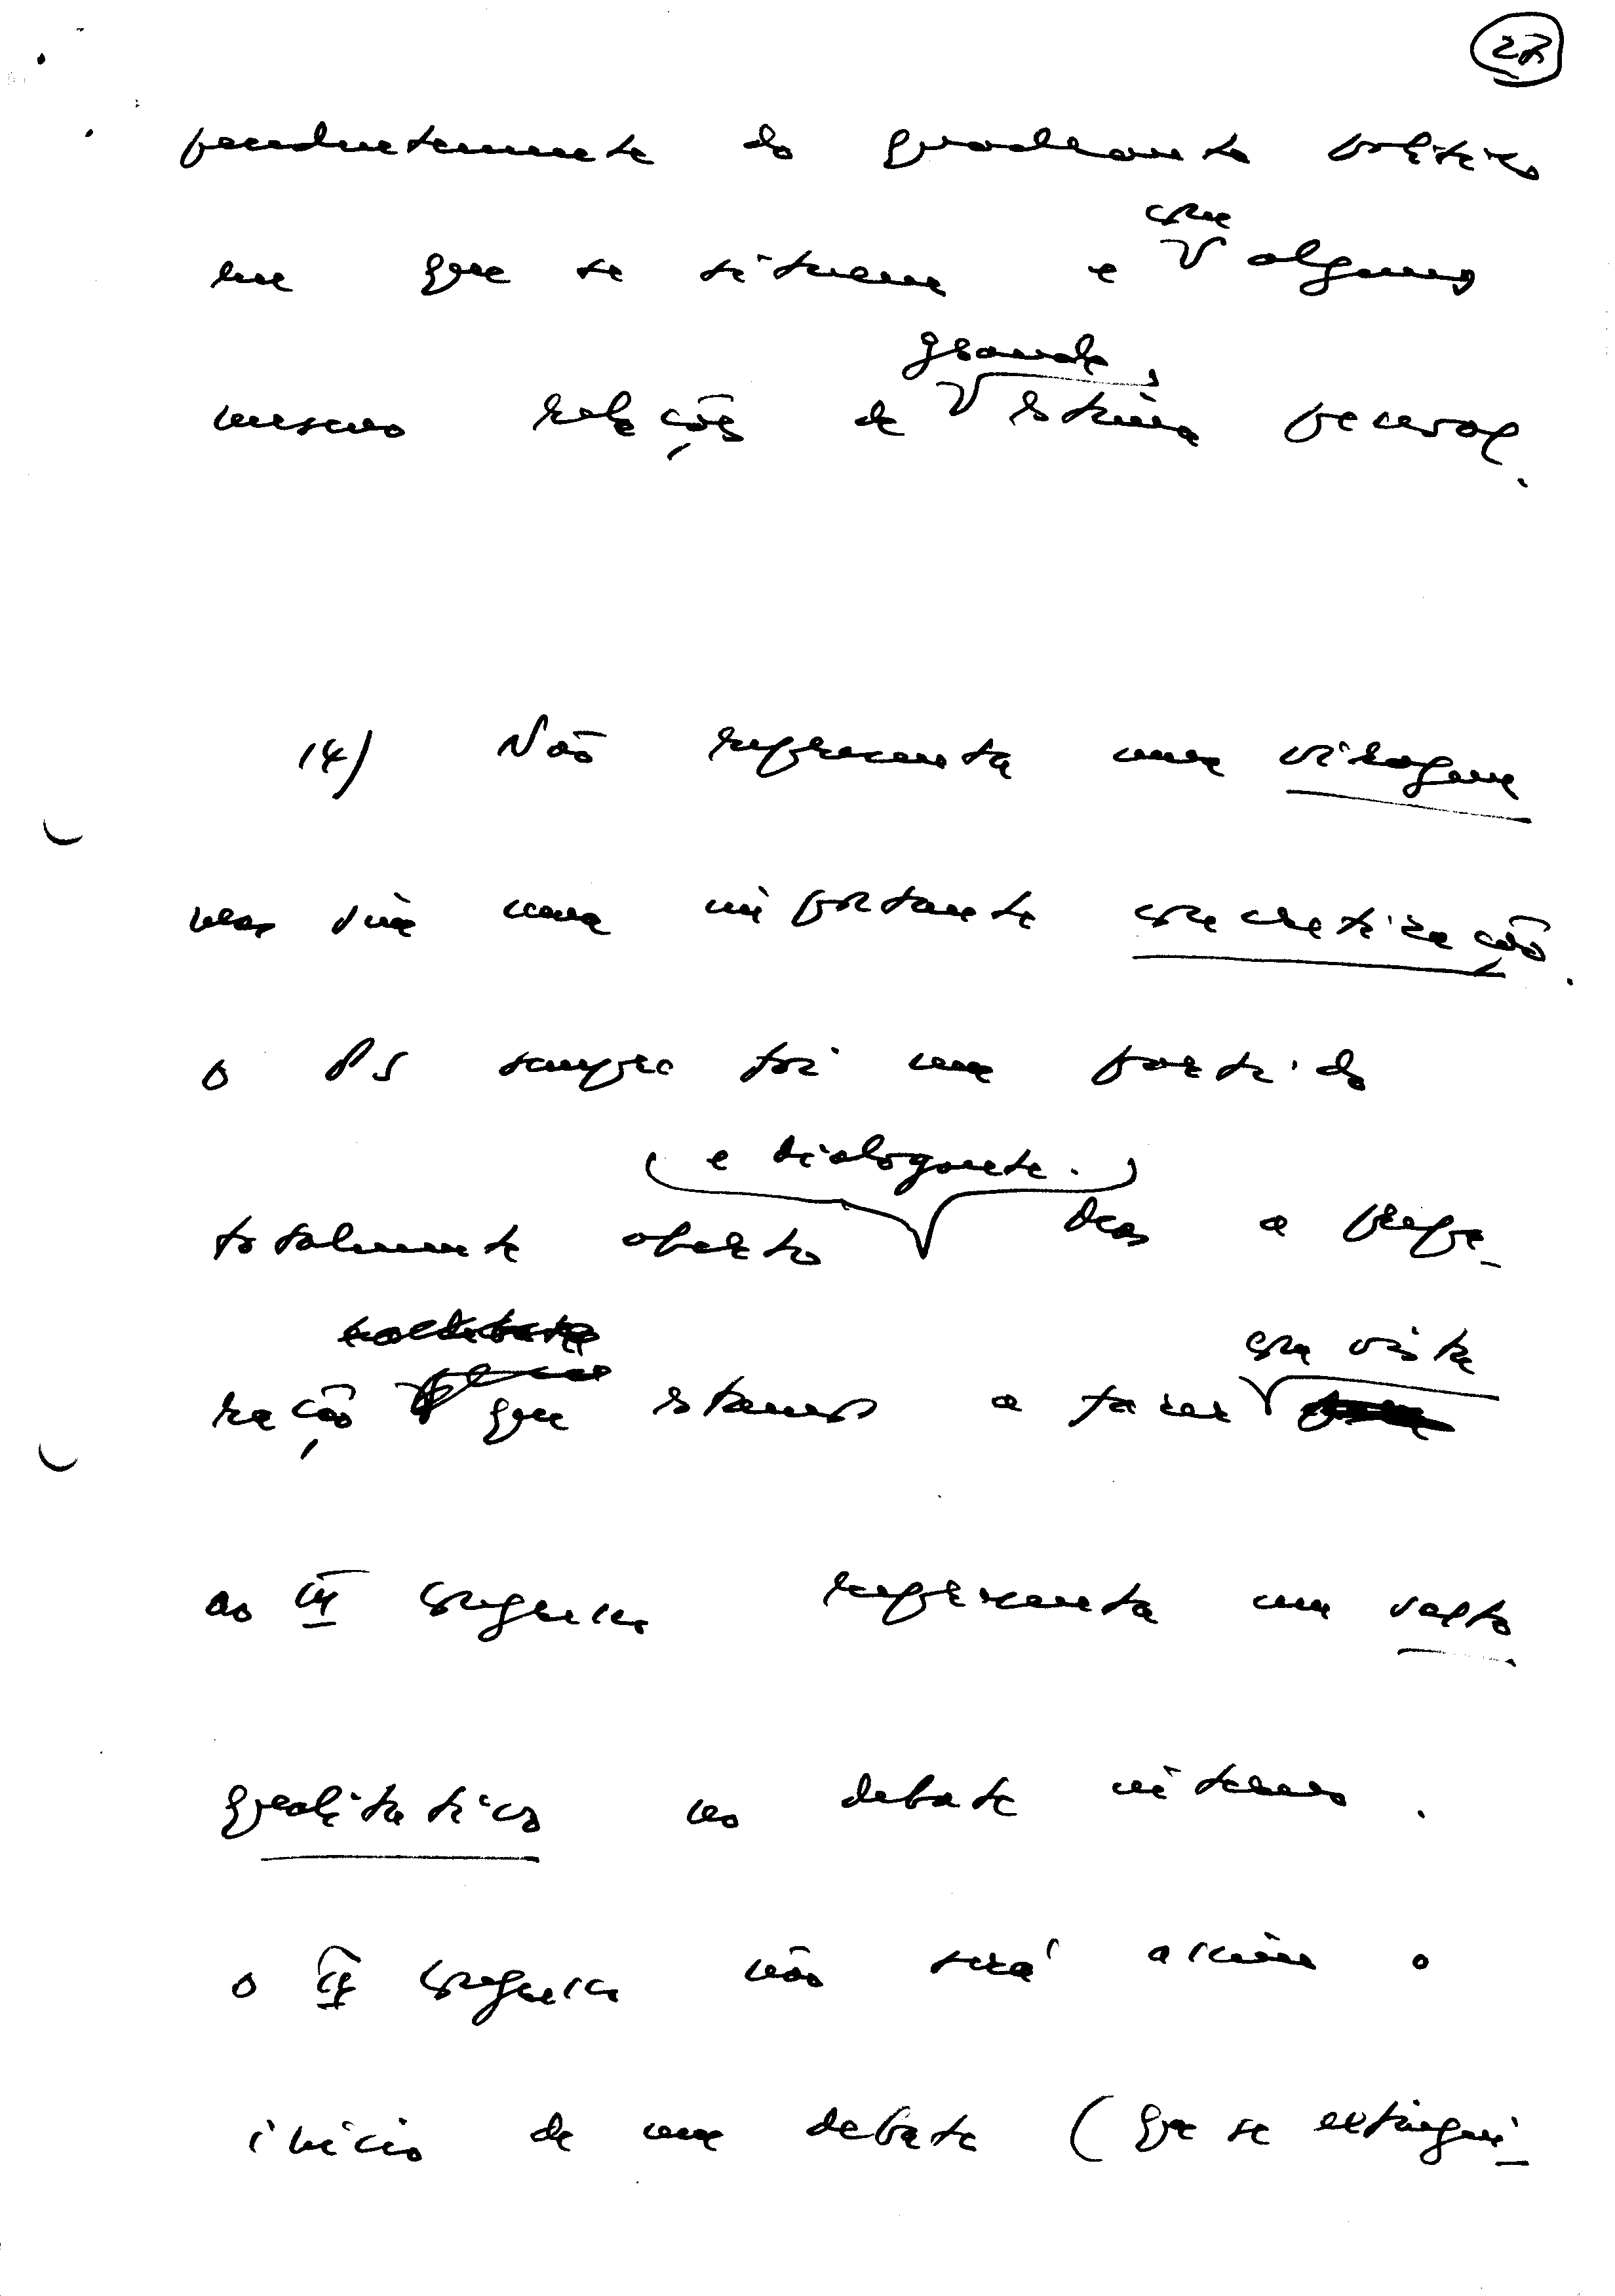 27
pendentemente do quadrante político
em que se situem e com alguns
mesmo relações de grande estima pessoal.
14) Não representa uma viragem
mas sim uma importante concretização.
O PS sempre foi um partido
totalmente aberto (e dialogante.) Mas a prepa-
ração que estamos a fazer com vista
ao IV Congresso representa um salto
qualitativo no debate interno.
O IV Congresso não será assim o
início de um debate (que se extingui-